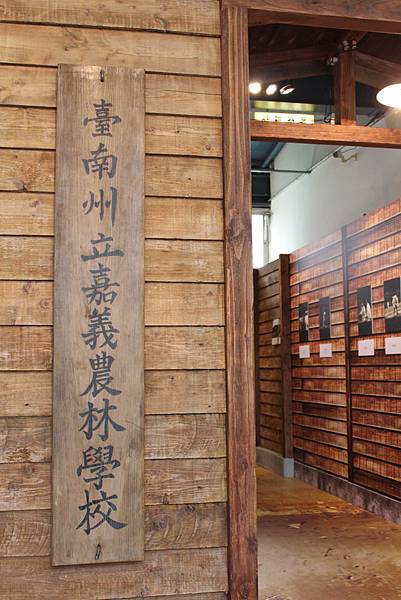 臺南州立嘉義農林學校